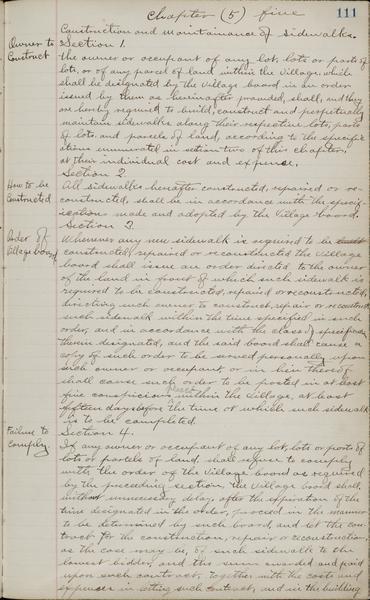 Chapter (5) five
111
Construction and maintainance of Sidewalks.
Owner to
Construct
Section 1.
The owner or occupant of any lot, lots or parts of
lots, or of any parcel of land within the Village, which
shall be designated by the Village board in an order
issued by them as hereinafter provided, shall, and they
are hereby required to build, construct and perpetually
maintain sidewalks along their respective lots, parts
of lots, and parcels of land, according to the specific-
ations enumerated in section two of this chapter,
at their individual cost and expense.
Section 2.
How to be
Constructed
All sidewalks hereafter constructed, repaired or re-
constructed, shall be in accordance with the specif-
ications made and adopted by the Village board.
Section 3.
Order of
Village board
Whenever any new sidewalk is required to be
constructed, repaired or reconstructed the Village
board shall issue an order directed to the owner
of the land in front of which such sidewalk is
required to be constructed, repaired or reconstructed,
directing such owner to construct, repair or reconstruct
such sidewalk within the time specified in such
order, and in accordance with the class of specifications
therein designated, and the said board shall cause a
copy of such order to be served personally upon
such owner or occupant, or in lieu thereof
shall cause such order to be posted in at least
five conspicious places within the Village, at least
fifteen days before the time at which such sidewalk
is to be completed.
Section 4.
Failure to
Comply.
If any owner or occupant of any lot, lots or parts of
lots or parcels of land, shall refuse to comply
with the order of the Village board as required
by the preceding section, the Village board shall,
without unnecessary delay, after the expiration of the
time designated in the order, proceed in the manner
to be determined by such board, and let the con-
tract for the construction, repair or reconstruction,
as the case may be, of such sidewalk to the
lowest bidder, and the sum awarded and paid
upon such contract, together with the costs and
expenses in letting such contract, and in the building